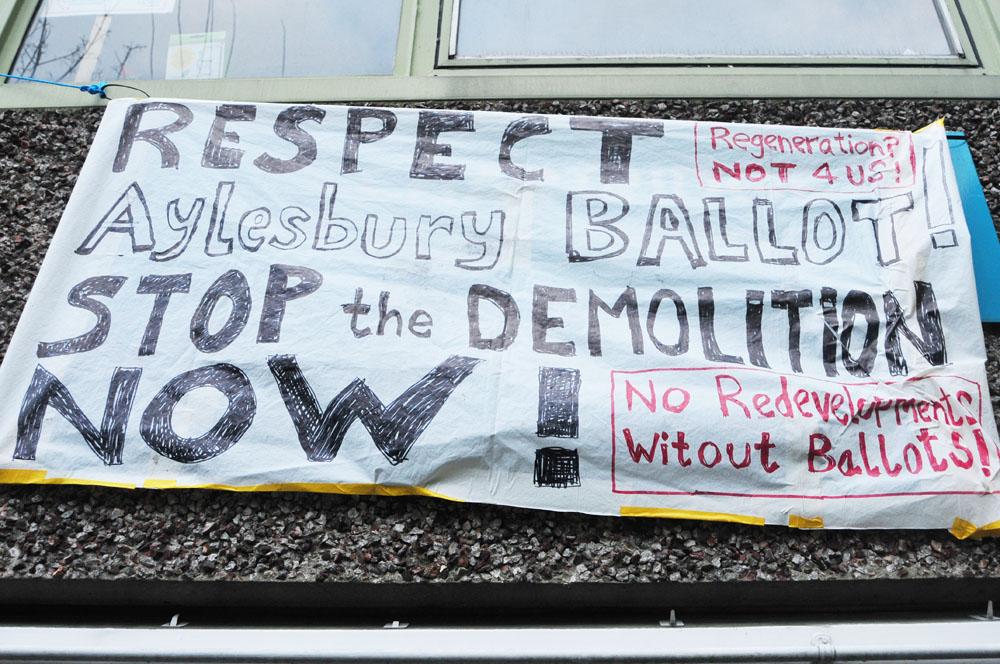 RESPECT
Regeneration?
NOT 4 US!
Aylesbury BALLOT!
STOP the DEMOLITION
NOW!
No Redevelopments
Witout Ballots!